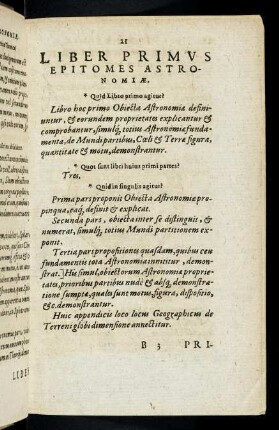 21
LIBER PRIMVS
EPITOMES ASTRO-
NOMIÆ.
* Quid Libro primo agitur?
Libro hoc primo Obiecta Astronomiæ defini-
untur, & eorundem proprietates explicantur &
comprobantur, simulq́, totius Astronomiæ funda-
menta, de Mundi partibus, Cœli & Terræ figura,
quantitate & motu, demonstrantur.
* Quot sunt libri huius primi partes?
Tres.
* Quid in singulis agitur?
Prima pars proponit Obiecta Astronomiæ pro-
pinqua, eaq́, definit & explicat.
Secunda pars, obiecta inter se distinguit, &
numerat, simulq́, totius Mundi partitionem ex-
ponit.
Tertia pars propositiones quasdam, quibus ceu
fundamentis tota Astronomia innititur, demon-
strat. Hic simul, obiectorum Astronomiæ proprie-
tates, prioribus partibus nudè & absq́, demonstra-
tione sumptæ, quales sunt motus, figura, dispositio,
&c. demonstrantur.
Huic appendicis loco locus Geographicus de
Terreni globi dimensione annectitur.
B 3 PRI-